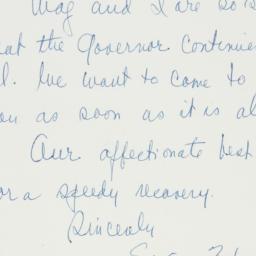 Mag and I are so s
at the Governor continue
l. We want to come to
ou as soon as it is al
Our affectionate best
or a speedy recovery.
Sincerely